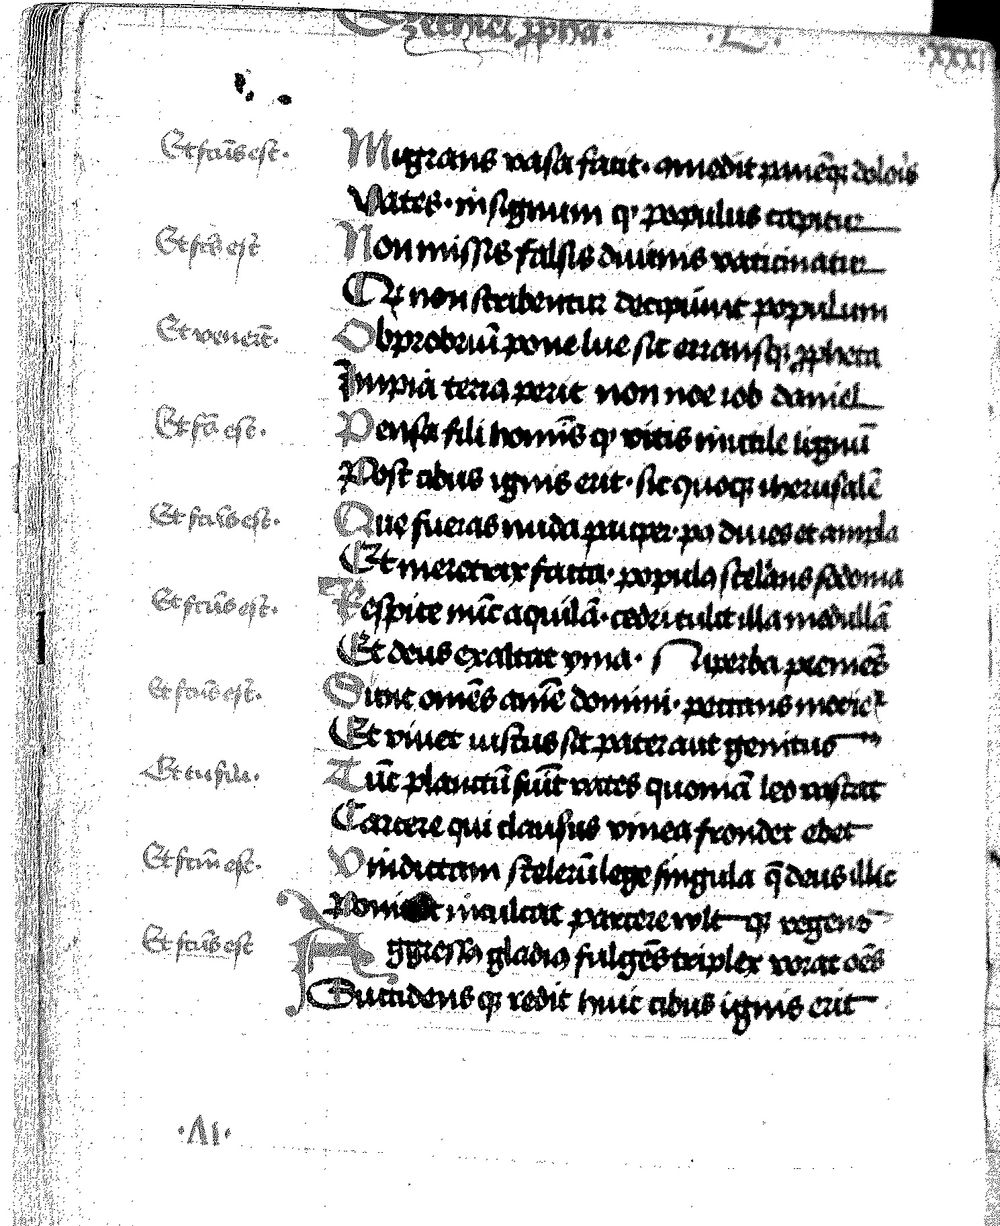 Ezechiel ꝓpha · L · xxx
Et fcūs est · Migrans vasa facit · comedit panēqꝫ doloris
Vates · insignum qꝫ populus capitur
Et fcūs est Non missis falsis divinis vaticinatur
Qui non scribentur decipiunt populum
Et venerūt · Obprobriū pone lue sic erransqꝫ ꝓpheta
Impia terra perit non noe iob daniel
Et fcūs est · Pensa fili hominis qꝫ vitis inutile lignū
Post cibus ignis erit · sic quoqꝫ iherusalē
Et fcūs est · Que fueras nuda pauper · po dives et ampla
Et meretrix facta · populo scelerans sodoma
Et fcūs est · Respice nūc aquilā · cedri tulit illa medullā
Et deus exaltat yma · Superba premēs
Et fcūs est · Sunt omēs anīe domini · peccans moriet
Et vivet iustus sit pater aut genitus
Et tu fili · Tūc planctū sūnt vates quoniā leo vastat
Carcere qui clausus vinea frondet ebet
Et fcūm est · Vindictam scelerū lege singula q̄ deus illic
inculcat parcere vult qꝫ regens
Et fcūs est Aggressa gladio fulgēs triplex vorat oēs
Succidens qꝫ redit huic cibus ignis erit
· VI ·